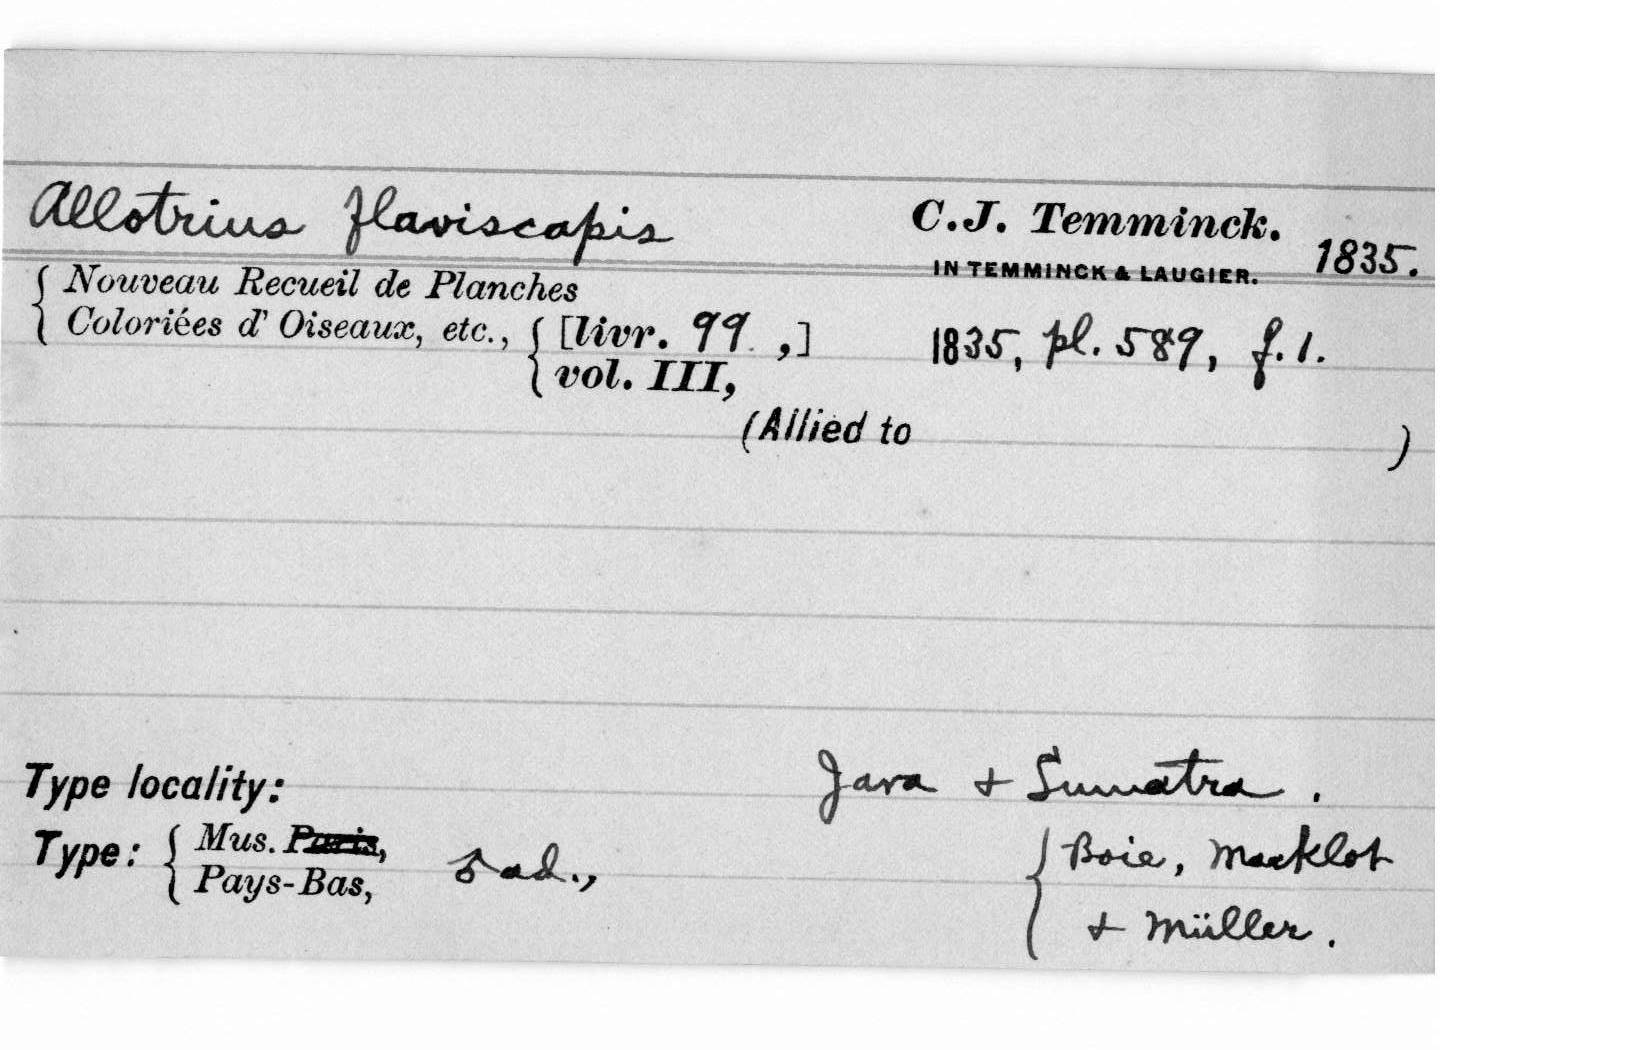 Allotrius flaviscapis C.J. Temminck. 1835.
IN TEMMINCK & LAUGIER.
Nouveau Recueil de Planches
Coloriées d' Oiseaux, etc., [livr. 99 ,] 1835, pl. 589, f. 1.
vol. III,
(Allied to )
Type locality: Java + Sumatra .
Type: Mus. Paris, Boie, Macklot
Pays-Bas, ad., + Müller .